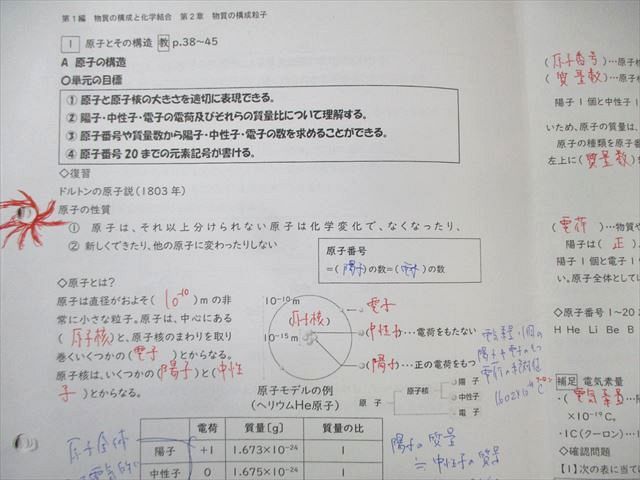 第1編 物質の構成と化学結合 第2章 物質の構成粒子
1 原子とその構造 教 p.38～45
A 原子の構造
○単元の目標
① 原子と原子核の大きさを適切に表現できる。
② 陽子・中性子・電子の電荷及びそれらの質量比について理解する。
③ 原子番号や質量数から陽子・中性子・電子の数を求めることができる。
④ 原子番号20までの元素記号が書ける。
◇復習
ドルトンの原子説(1803年)
原子の性質
① 原子は、それ以上分けられない原子は化学変化で、なくなったり、
② 新しくできたり、他の原子に変わったりしない
原子番号
=(陽子)の数=(電子)の数
◇原子とは?
原子は直径がおよそ( 10⁻¹⁰ )mの非
常に小さな粒子。原子は、中心にある
(原子核)と、原子核のまわりを取り
巻くいくつかの(電子)とからなる。
原子核は、いくつかの(陽子)と(中性
子)とからなる。
10⁻¹⁰m
(原子核)
10⁻¹⁵m
電子
中性子…電荷をもたない
(陽子)…正の電荷をもつ
原子モデルの例
(ヘリウムHe原子)
原子
原子核
陽子
中性子
電子
電荷 質量[g] 質量の比
陽子 +1 1.673×10⁻²⁴ 1
中性子 0 1.675×10⁻²⁴ 1
原子全体
陽子の質量
≒中性子の質量
(原子番号)…原子核
(質量数)…原子核
陽子1個と中性子1
いため、原子の質量は、
原子の種類を原子番
左上に(質量数)
(電荷)…物質や
陽子は(正)
陽子1個と電子1個
い。原子全体として
◇原子番号1～20
H He Li Be B
補足 電気素量
・(電気素量…陽
×10⁻¹⁹C。
・1C(クーロン)…1
◇確認問題
【1】次の表に当て